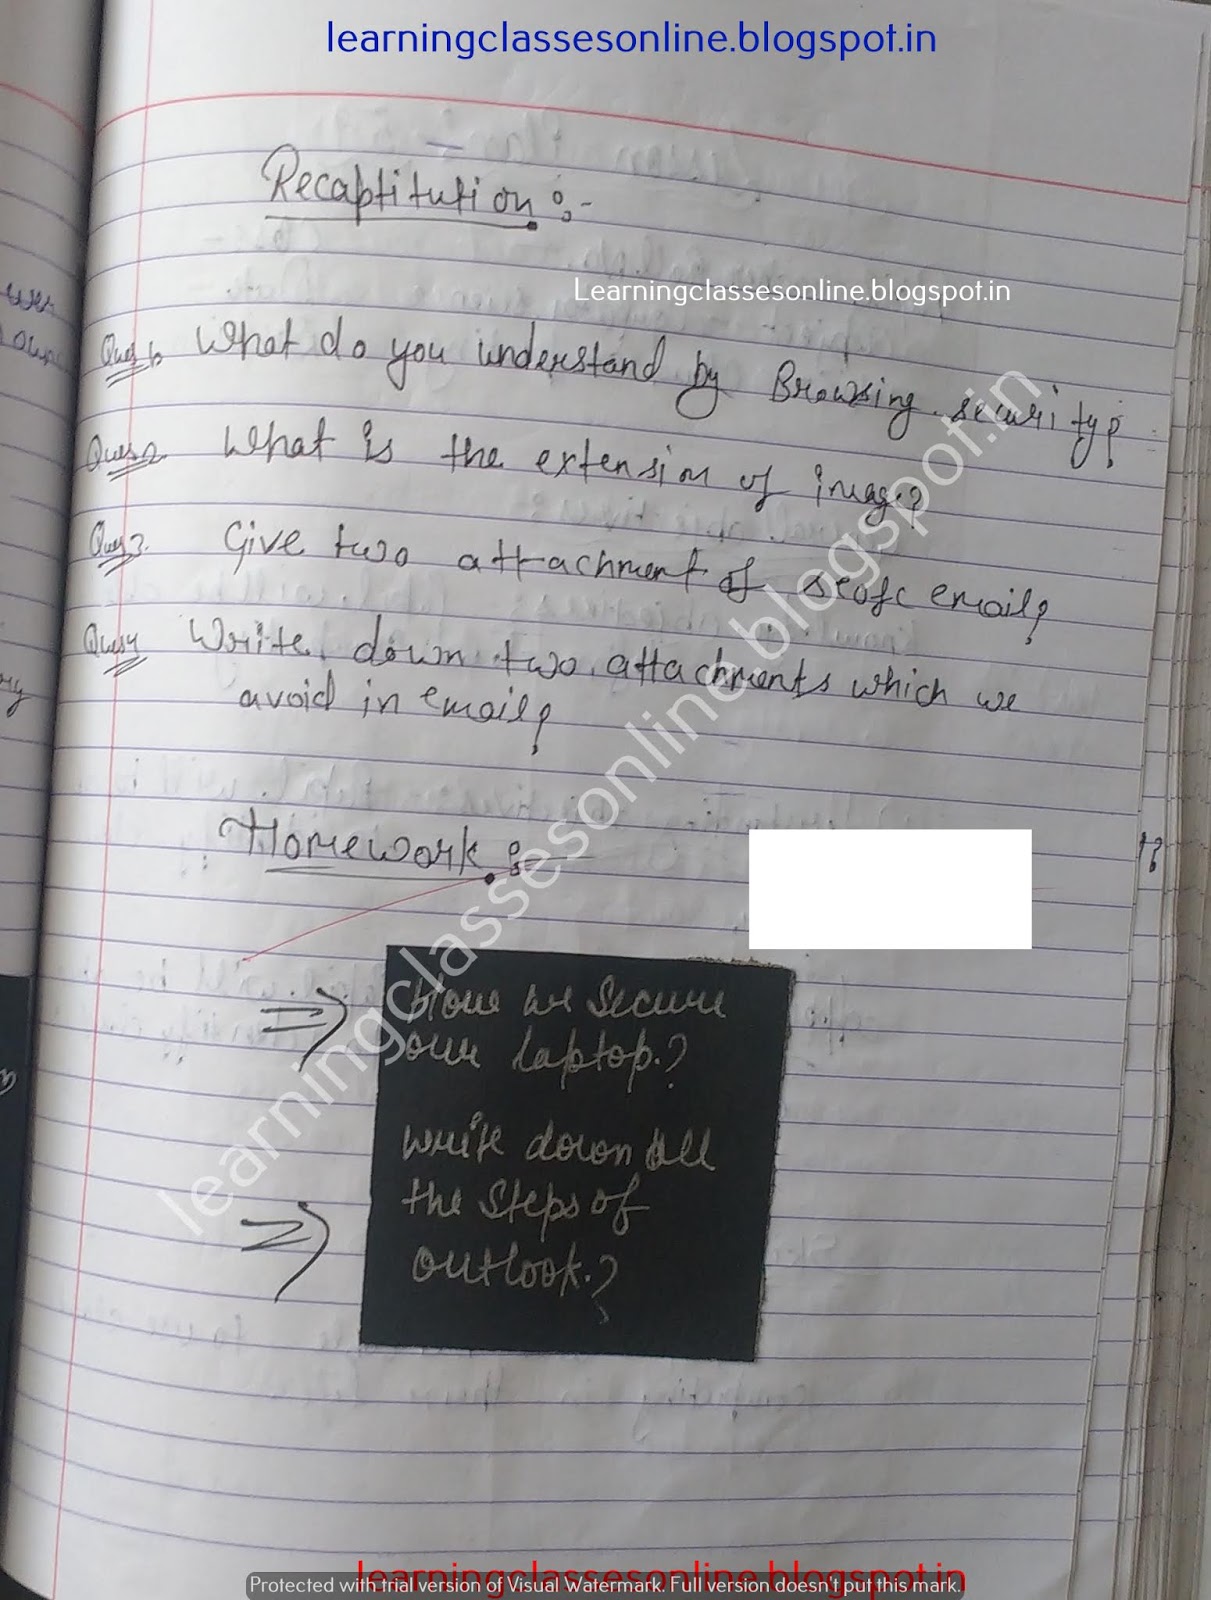 learningclassesonline.blogspot.in
Recaptitution :-
Learningclassesonline.blogspot.in
Ques 1. What do you understand by Browsing security?
Ques 2. What is the extension of image?
Ques 3. Give two attachment of email?
Ques 4 Write down two attachments which we
avoid in email?
Homework :-
we secure
our laptop.?
write down all
the steps of
outlook.?
learningclassesonline.blogspot.in
learningclassesonline.blogspot.in
Protected with trial version of Visual Watermark. Full version doesn't put this mark.